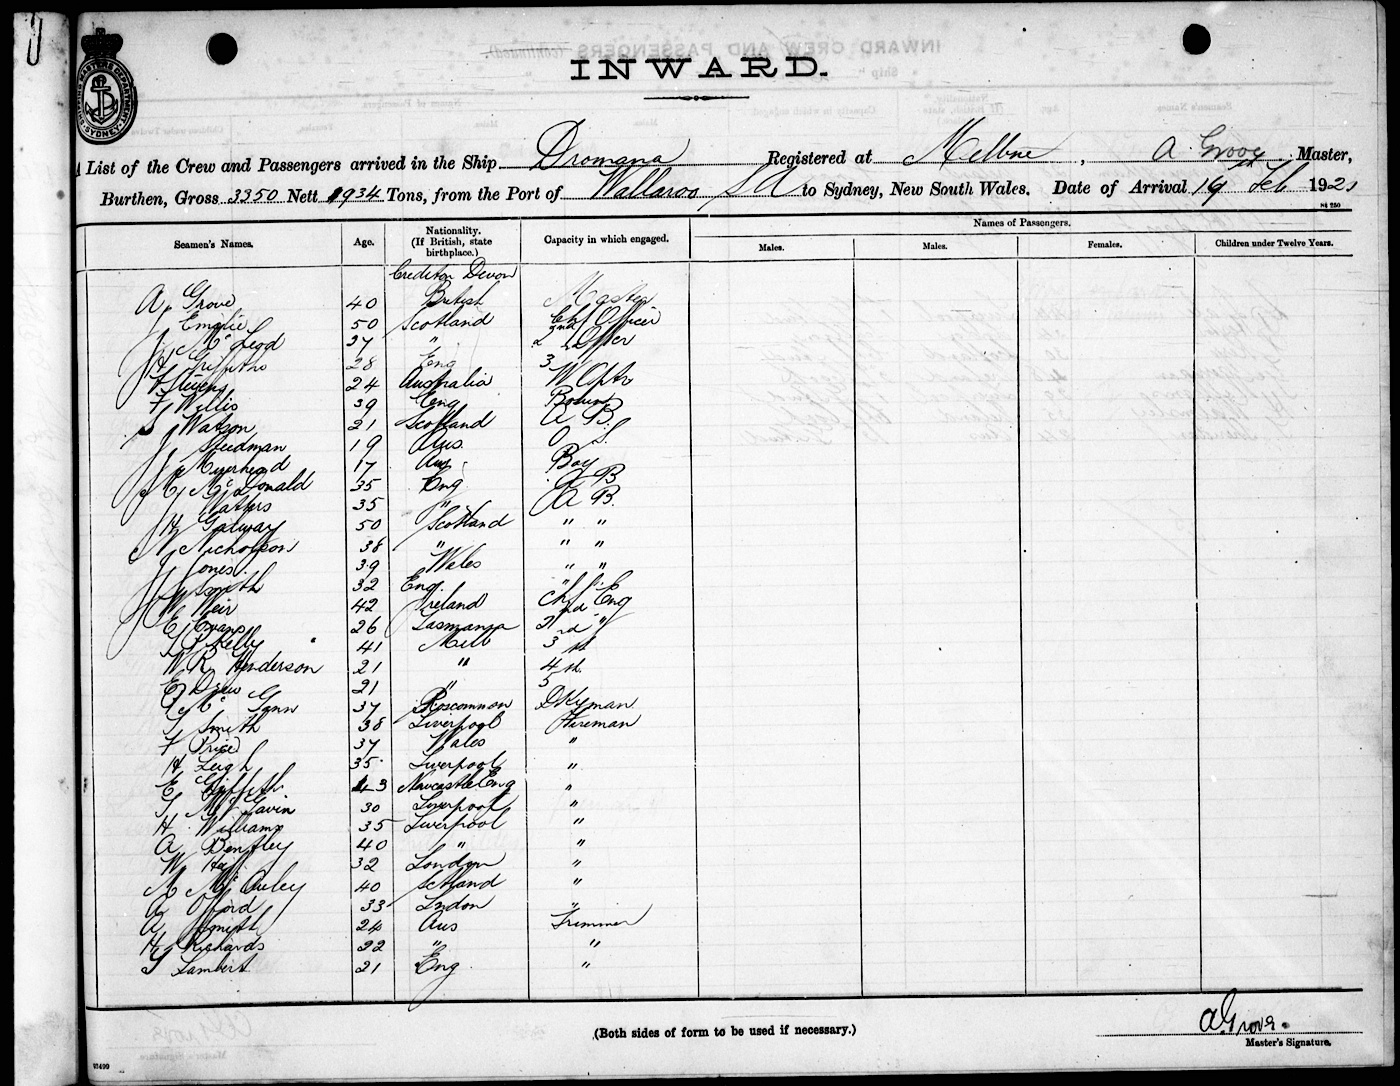 INWARD.
SHIPPING MASTERS DEPARTMENT SYDNEY
List of the Crew and Passengers arrived in the Ship Dromana Registered at Melbne, A. Grove Master,
Burthen, Gross 3350 Nett 1934 Tons, from the Port of Wallaroo SA to Sydney, New South Wales. Date of Arrival 19 Feb 192
St 250
Seamen's Names. Age. Nationality. (If British, state birthplace.) Capacity in which engaged. Names of Passengers.
Males. Males. Females. Children under Twelve Years.
Crediton Devon
A Grove 40 British Master
J 50 Scotland Chf Officer
J McLeod 27 " 2nd Offcer
H Griffiths 28 Eng 3
F Stevens 24 Australia W Optr
F Willis 39 Eng Bosun
J Watson 21 Scotland A B
J Steedman 19 Aus O S
J Muirhead 17 Aus Boy
K McDonald 35 Eng A B
J Watters 35 " A B.
H Galway 50 Scotland " "
N Nicholson 38 " " "
J Jones 39 Wales " "
J Smith 32 Eng. " "
W Weir 42 Ireland Chf Eng
E Evans 26 Tasmania 2nd "
Kelly 41 Melb 3rd
W. R. Henderson 21 " 4th
E Drew 21 " 5th
Mc Gann 37 Roscommon Dkyman
J Smith 38 Liverpool Fireman
F Price 37 Wales "
H Leigh 35 Liverpool "
E Griffith 43 Newcastle Eng "
J McGavin 30 Liverpool "
H Williams 35 Liverpool "
A Bentley 40 " "
W 32 London "
M McAuley 40 Scotland "
A Offord 33 London "
A Smith 24 Aus Trimmer
H Richards 22 " "
J Lambert 21 Eng "
(Both sides of form to be used if necessary.)
A Grove.
Master's Signature.